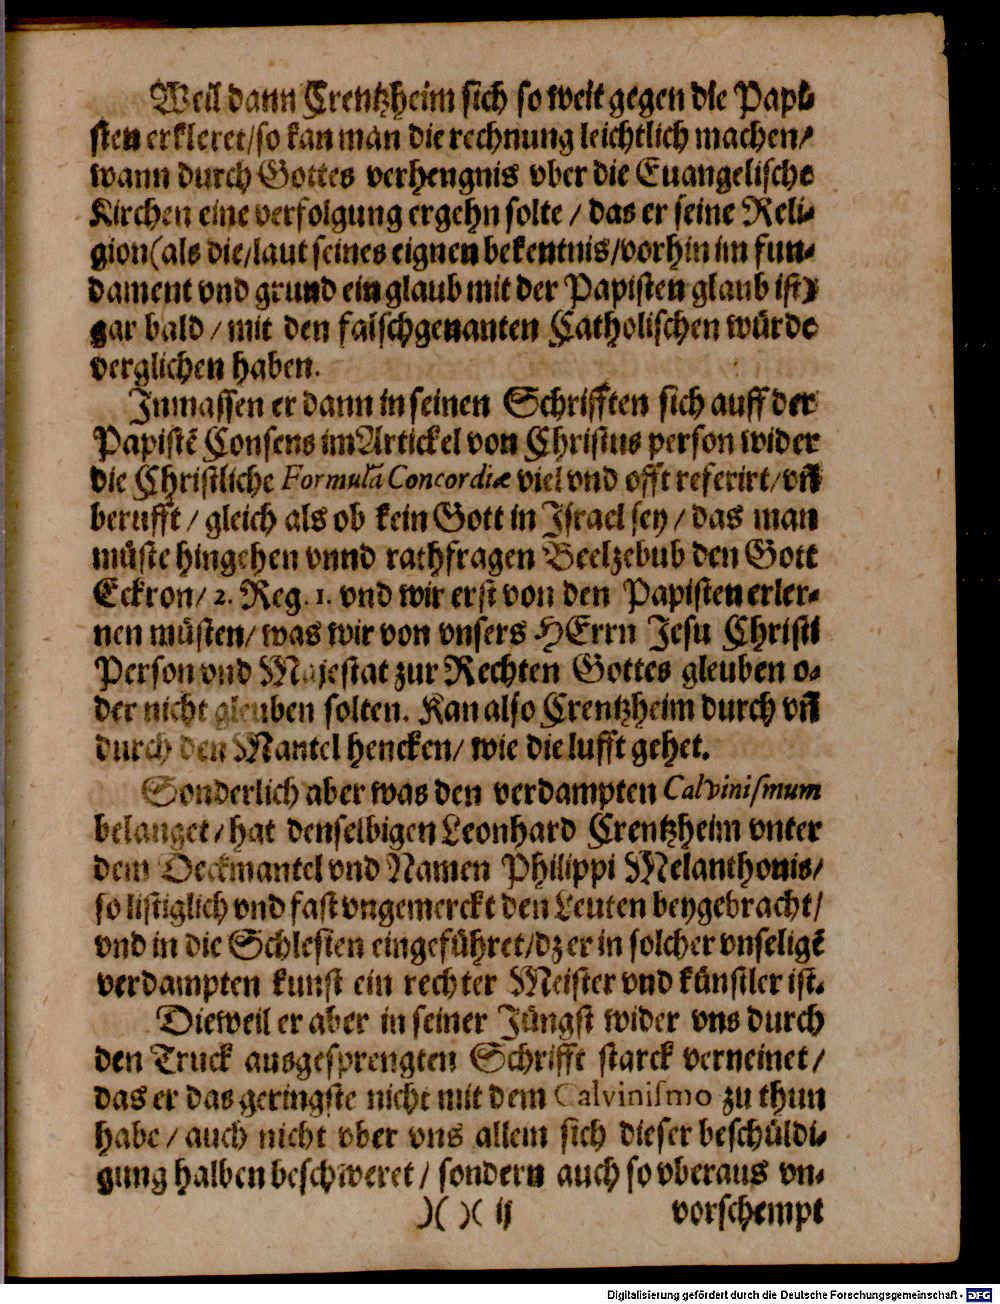 Weil dann Crentzheim sich so weit gegen die Papi-
sten erkleret/ so kan man die rechnung leichtlich machen/
wann durch Gottes verhengnis vber die Euangelische
Kirchen eine verfolgung ergehn solte / das er seine Reli-
gion (als die/ laut seines eignen bekentnis/ vorhin im fun-
dament vnd grund ein glaub mit der Papisten glaub ist)
gar bald / mit den falschgenanten Catholischen würde
verglichen haben.
Inmassen er dann in seinen Schrifften sich auff der
Papistẽ Consens im Artickel von Christus person wider
die Christliche Formulã Concordiæ viel vnd offt referirt/ vñ
berufft / gleich als ob kein Gott in Israel sey / das man
müste hingehen vnnd rathfragen Beelzebub den Gott
Eckron/ 2. Reg. 1. vnd wir erst von den Papisten erler-
nen müsten/ was wir von vnsers HErrn Jesu Christi
Person vnd Majestat zur Rechten Gottes gleuben o-
der nicht gleuben solten. Kan also Crentzheim durch vñ
durch den Mantel hencken/ wie die lufft gehet.
Sonderlich aber was den verdampten Calvinismum
belanget / hat denselbigen Leonhard Crentzheim vnter
dem Deckmantel vnd Namen Philippi Melanthonis/
so listiglich vnd fast vngemerckt den Leuten beygebracht/
vnd in die Schlesien eingeführet/ dz er in solcher vnseligẽ
verdampten kunst ein rechter Meister vnd künstler ist.
Dieweil er aber in seiner Jüngst wider vns durch
den Truck ausgesprengten Schrifft starck verneinet /
das er das geringste nicht mit dem Calvinismo zu thun
habe / auch nicht vber vns allein sich dieser beschüldi-
gung halben beschweret / sondern auch so vberaus vn-
)( )( ij vorschempt
Digitalisierung gefördert durch die Deutsche Forschungsgemeinschaft - DFG